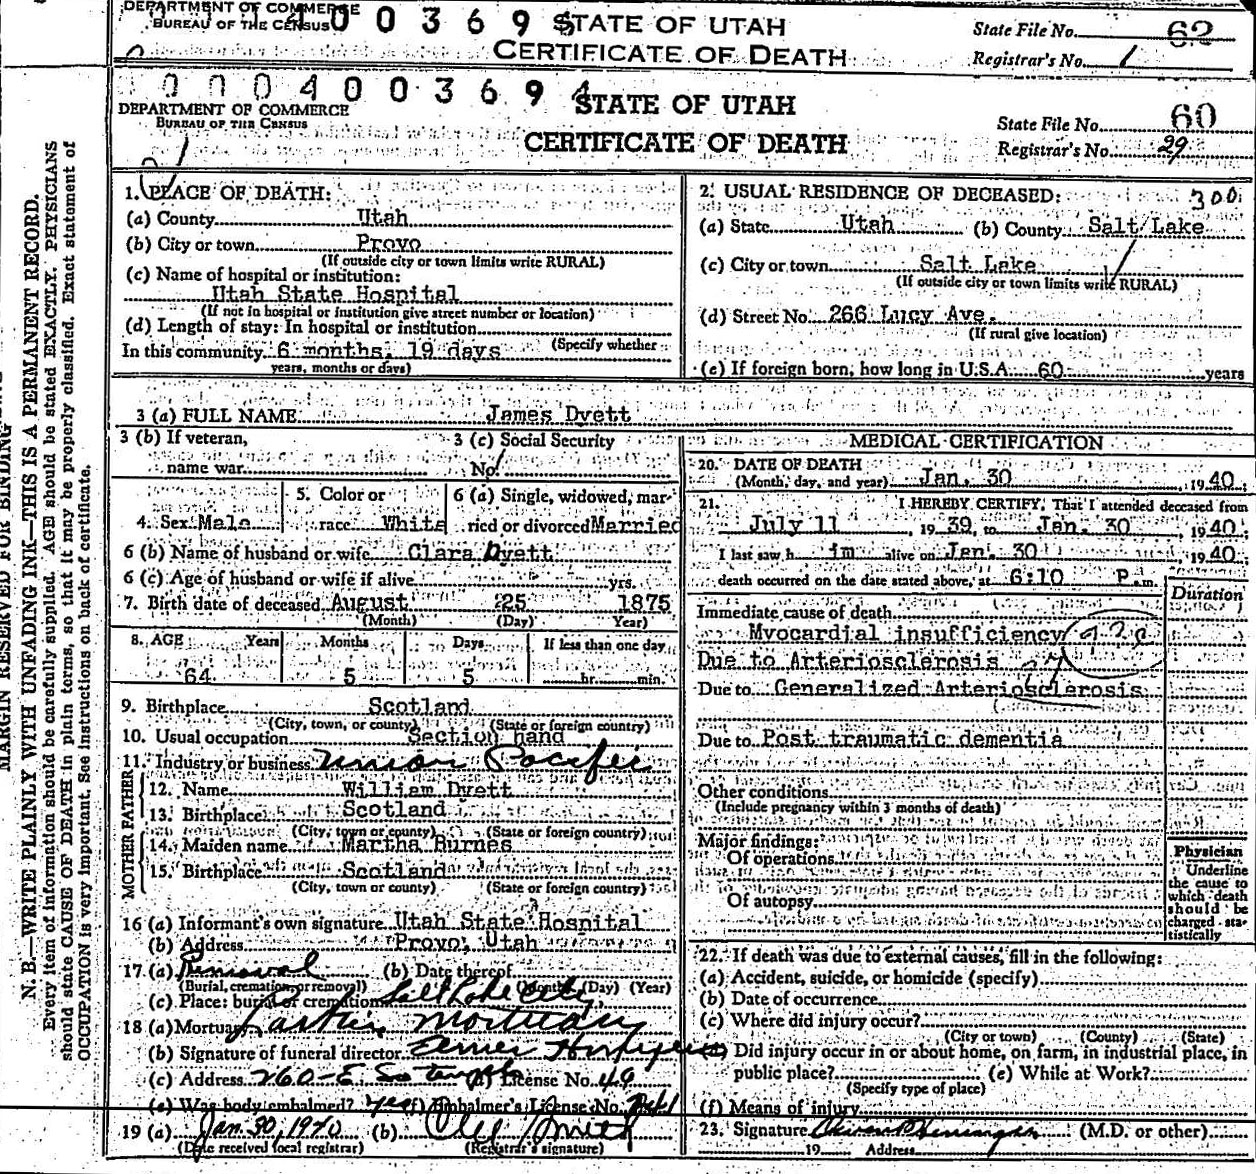 DEPARTMENT OF COMMERCE
BUREAU OF THE CENSUS
0 0 3 6 9
STATE OF UTAH
CERTIFICATE OF DEATH
State File No. 62
Registrar's No. 1
0 0 0 4 0 0 3 6 9 4
DEPARTMENT OF COMMERCE
BUREAU OF THE CENSUS
STATE OF UTAH
CERTIFICATE OF DEATH
State File No. 60
Registrar's No. 29
MARGIN RESERVED FOR BINDING
N. B.—WRITE PLAINLY WITH UNFADING INK—THIS IS A PERMANENT RECORD.
Every item of information should be carefully supplied. AGE should be stated EXACTLY. PHYSICIANS
should state CAUSE OF DEATH in plain terms, so that it may be properly classified. Exact statement of
OCCUPATION is very important. See instructions on back of certificate.
1. PLACE OF DEATH:
(a) County Utah
(b) City or town Provo
(If outside city or town limits write RURAL)
(c) Name of hospital or institution:
Utah State Hospital
(If not in hospital or institution give street number or location)
(d) Length of stay: In hospital or institution
(Specify whether
In this community 6 months, 19 days
years, months or days)
2. USUAL RESIDENCE OF DECEASED: 300
(a) State Utah (b) County Salt Lake
(c) City or town Salt Lake
(If outside city or town limits write RURAL)
(d) Street No. 266 Lucy Ave.
(If rural give location)
(e) If foreign born, how long in U.S.A. 60 years
3 (a) FULL NAME James Dyett
3 (b) If veteran,
name war
3 (c) Social Security
No.
4. Sex Male
5. Color or
race White
6 (a) Single, widowed, mar-
ried or divorced Married
6 (b) Name of husband or wife Clara Dyett
6 (c) Age of husband or wife if alive yrs.
7. Birth date of deceased August 25 1875
(Month) (Day) Year)
8. AGE Years Months Days If less than one day
64 5 5 hr. min.
9. Birthplace Scotland
(City, town, or county) (State or foreign country)
10. Usual occupation Section hand
11. Industry or business Union Pacific
FATHER
12. Name William Dyett
13. Birthplace Scotland
(City, town or county) (State or foreign country)
MOTHER
14. Maiden name Martha Burnes
15. Birthplace Scotland
(City, town or county) (State or foreign country)
16 (a) Informant's own signature Utah State Hospital
(b) Address Provo, Utah
17 (a) Removal (b) Date thereof
(Burial, cremation, or removal) (Month) (Day) (Year)
(c) Place: burial or cremation Salt Lake City
18 (a) Mortuary Larkin Mortuary
(b) Signature of funeral director
(c) Address 260-E So Temple (d) License No. 46
(e) Was body embalmed? yes (f) Embalmer's License No.
19 (a) Jan. 30, 1940 (b) Smith
(Date received local registrar) (Registrar's signature)
MEDICAL CERTIFICATION
20. DATE OF DEATH
(Month, day, and year) Jan. 30, 1940;
21. I HEREBY CERTIFY, That I attended deceased from
July 11, 1939, to Jan. 30, 1940;
I last saw h im alive on Jan. 30 1940;
death occurred on the date stated above, at 6:10 P m.
Duration
Immediate cause of death
Myocardial insufficiency
Due to Arteriosclerosis
Due to Generalized Arteriosclerosis
Due to Post traumatic dementia
Other conditions
(Include pregnancy within 3 months of death)
Major findings:
Of operations
Of autopsy
Physician
Underline
the cause to
which death
should be
charged sta-
tistically
22. If death was due to external causes, fill in the following:
(a) Accident, suicide, or homicide (specify)
(b) Date of occurrence
(c) Where did injury occur?
(City or town) (County) (State)
Did injury occur in or about home, on farm, in industrial place, in
public place? (e) While at Work?
(Specify type of place)
(f) Means of injury
23. Signature (M.D. or other)
19 Address